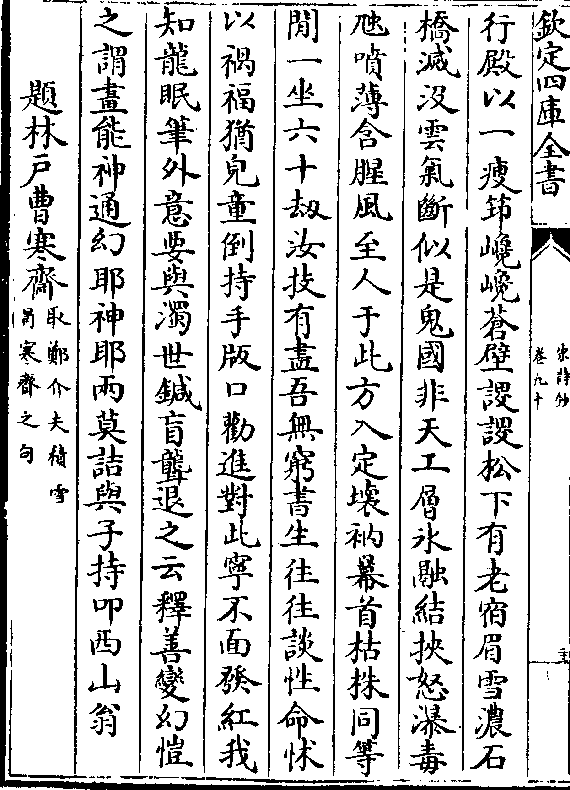 欽定四庫全書
宋詩鈔
卷九十
行殿以一瘦筇巉巉蒼壁謖謖松下有老宿眉雪濃石
橋滅没雲氣斷似是鬼國非天工層氷融結挾怒瀑毒
虺噴薄含腥風至人于此方入定壊衲幕首枯株同等
閒一坐六十劫汝技有盡吾無窮書生往往談性命怵
以禍福猶兒童倒持手版口勸進對此寜不面發紅我
知龍眠筆外意要與濁世鍼盲聾退之云釋善變幻愷
之謂畫能神通幻耶神耶兩莫詰與子持叩西山翁
題林戶曹寒齋
取鄭介夫積雪
鬲寒齋之句